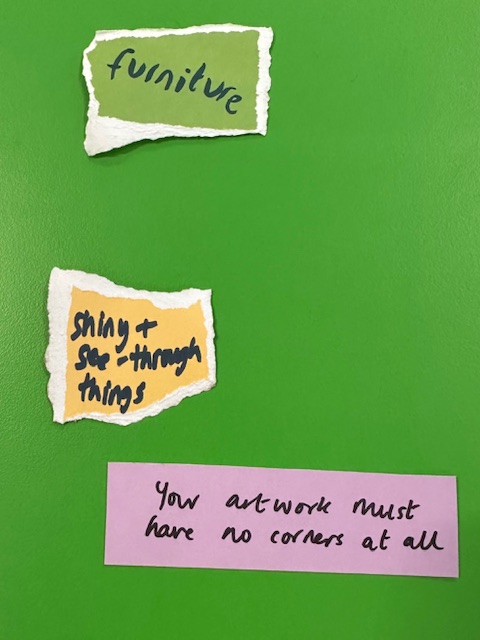 furniture
shiny +
see-through
things
Your artwork must
have no corners at all